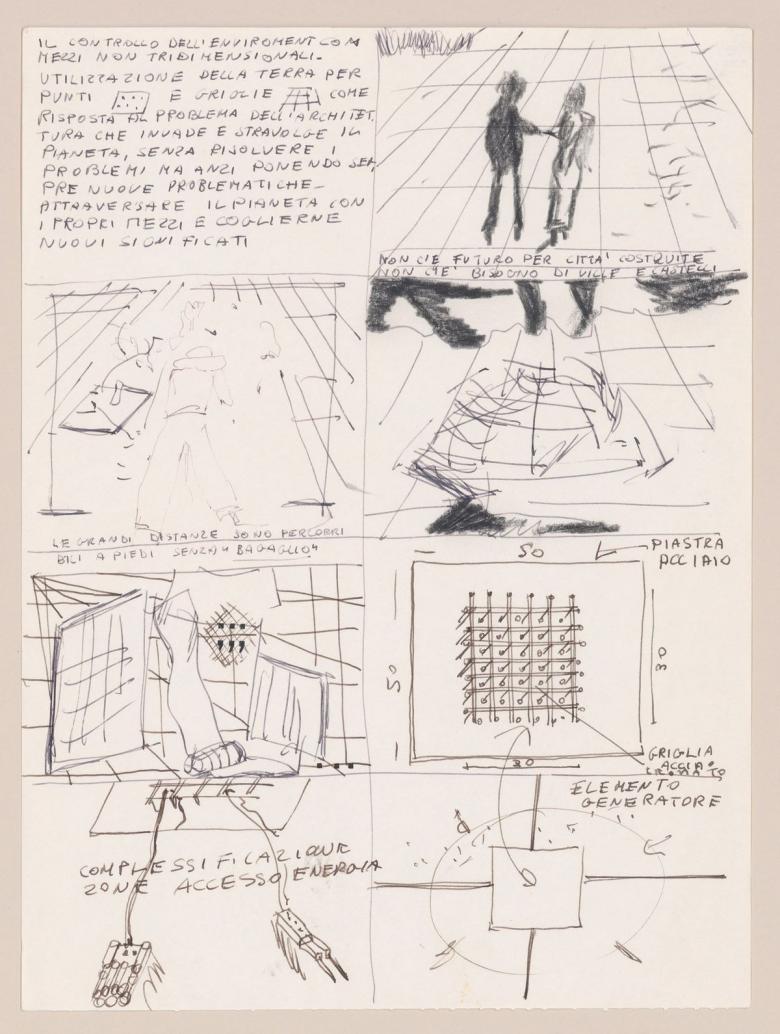 IL CONTROLLO DELL'ENVIROMENT CON
MEZZI NON TRIDIMENSIONALI-
UTILIZZAZIONE DELLA TERRA PER
PUNTI E GRIGLIE COME
RISPOSTA AL PROBLEMA DELL'ARCHITET.
TURA CHE INVADE E STRAVOLGE IL
PIANETA, SENZA RISOLVERE I
PROBLEMI MA ANZI PONENDO SEM
PRE NUOVE PROBLEMATICHE-
ATTRAVERSARE IL PIANETA CON
I PROPRI MEZZI E COGLIERNE
NUOVI SIGNIFICATI
NON C'E FUTURO PER CITTA' COSTRUITE
NON C'E' BISOGNO DI VILLE E CASTELLI
LE GRANDI DISTANZE SONO PERCORRI
BILI A PIEDI SENZA "BAGAGLIO"
50
PIASTRA
ACCIAIO
50
30
30
GRIGLIA
ACCIAIO
CROMATO
COMPLESSIFICAZIONE
ZONE ACCESSO ENERGIA
ELEMENTO
GENERATORE